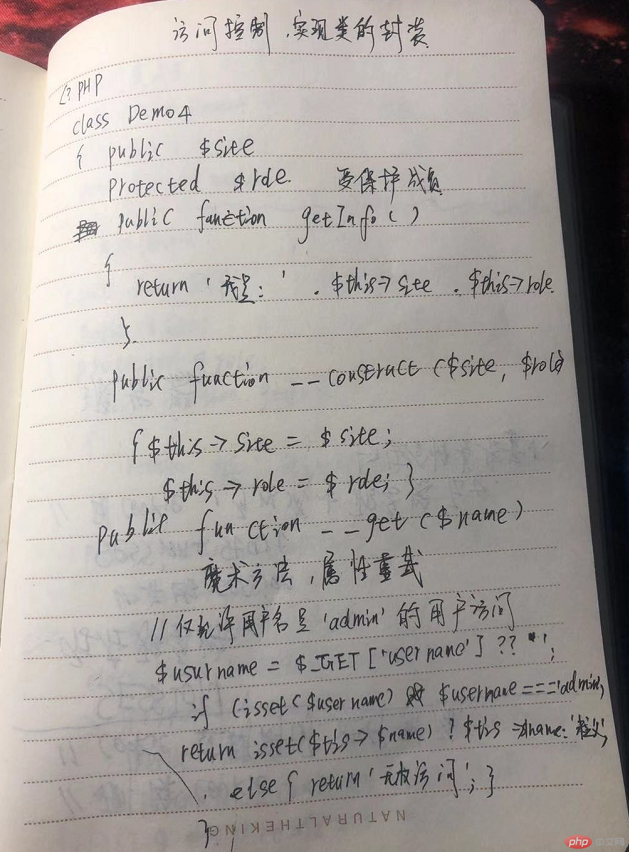 访问控制,实现类的封装
[? PHP
class Demo4
{ public $site
Protected $role 受保护成员
public function getInfo ( )
{
return '我是:' . $this-> site . $this-> role
}
public function __ construct ($site, $role)
{ $this -> site = $site;
$this -> role = $ role; }
public function __get ($name)
魔术方法,属性重载
// 仅允许用户名是'admin'的用户访问
$usurname = $_GET ['username'] ?? '';
if (isset($username) && $username === 'admin,
return isset($this-> $name) ? $this ->$name:
else { return '无权访问'; }
}
NATURALTHEKING
php 中文网